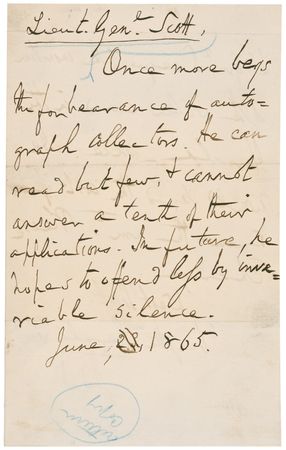 Lieut. Gen.l Scott,
Once more begs
the forbearance of auto=
graph collectors. He can
read but few, & cannot
answer a tenth of their
applications. In future, he
hopes to offend less by inva=
riable silence.
June, 1865.
copy